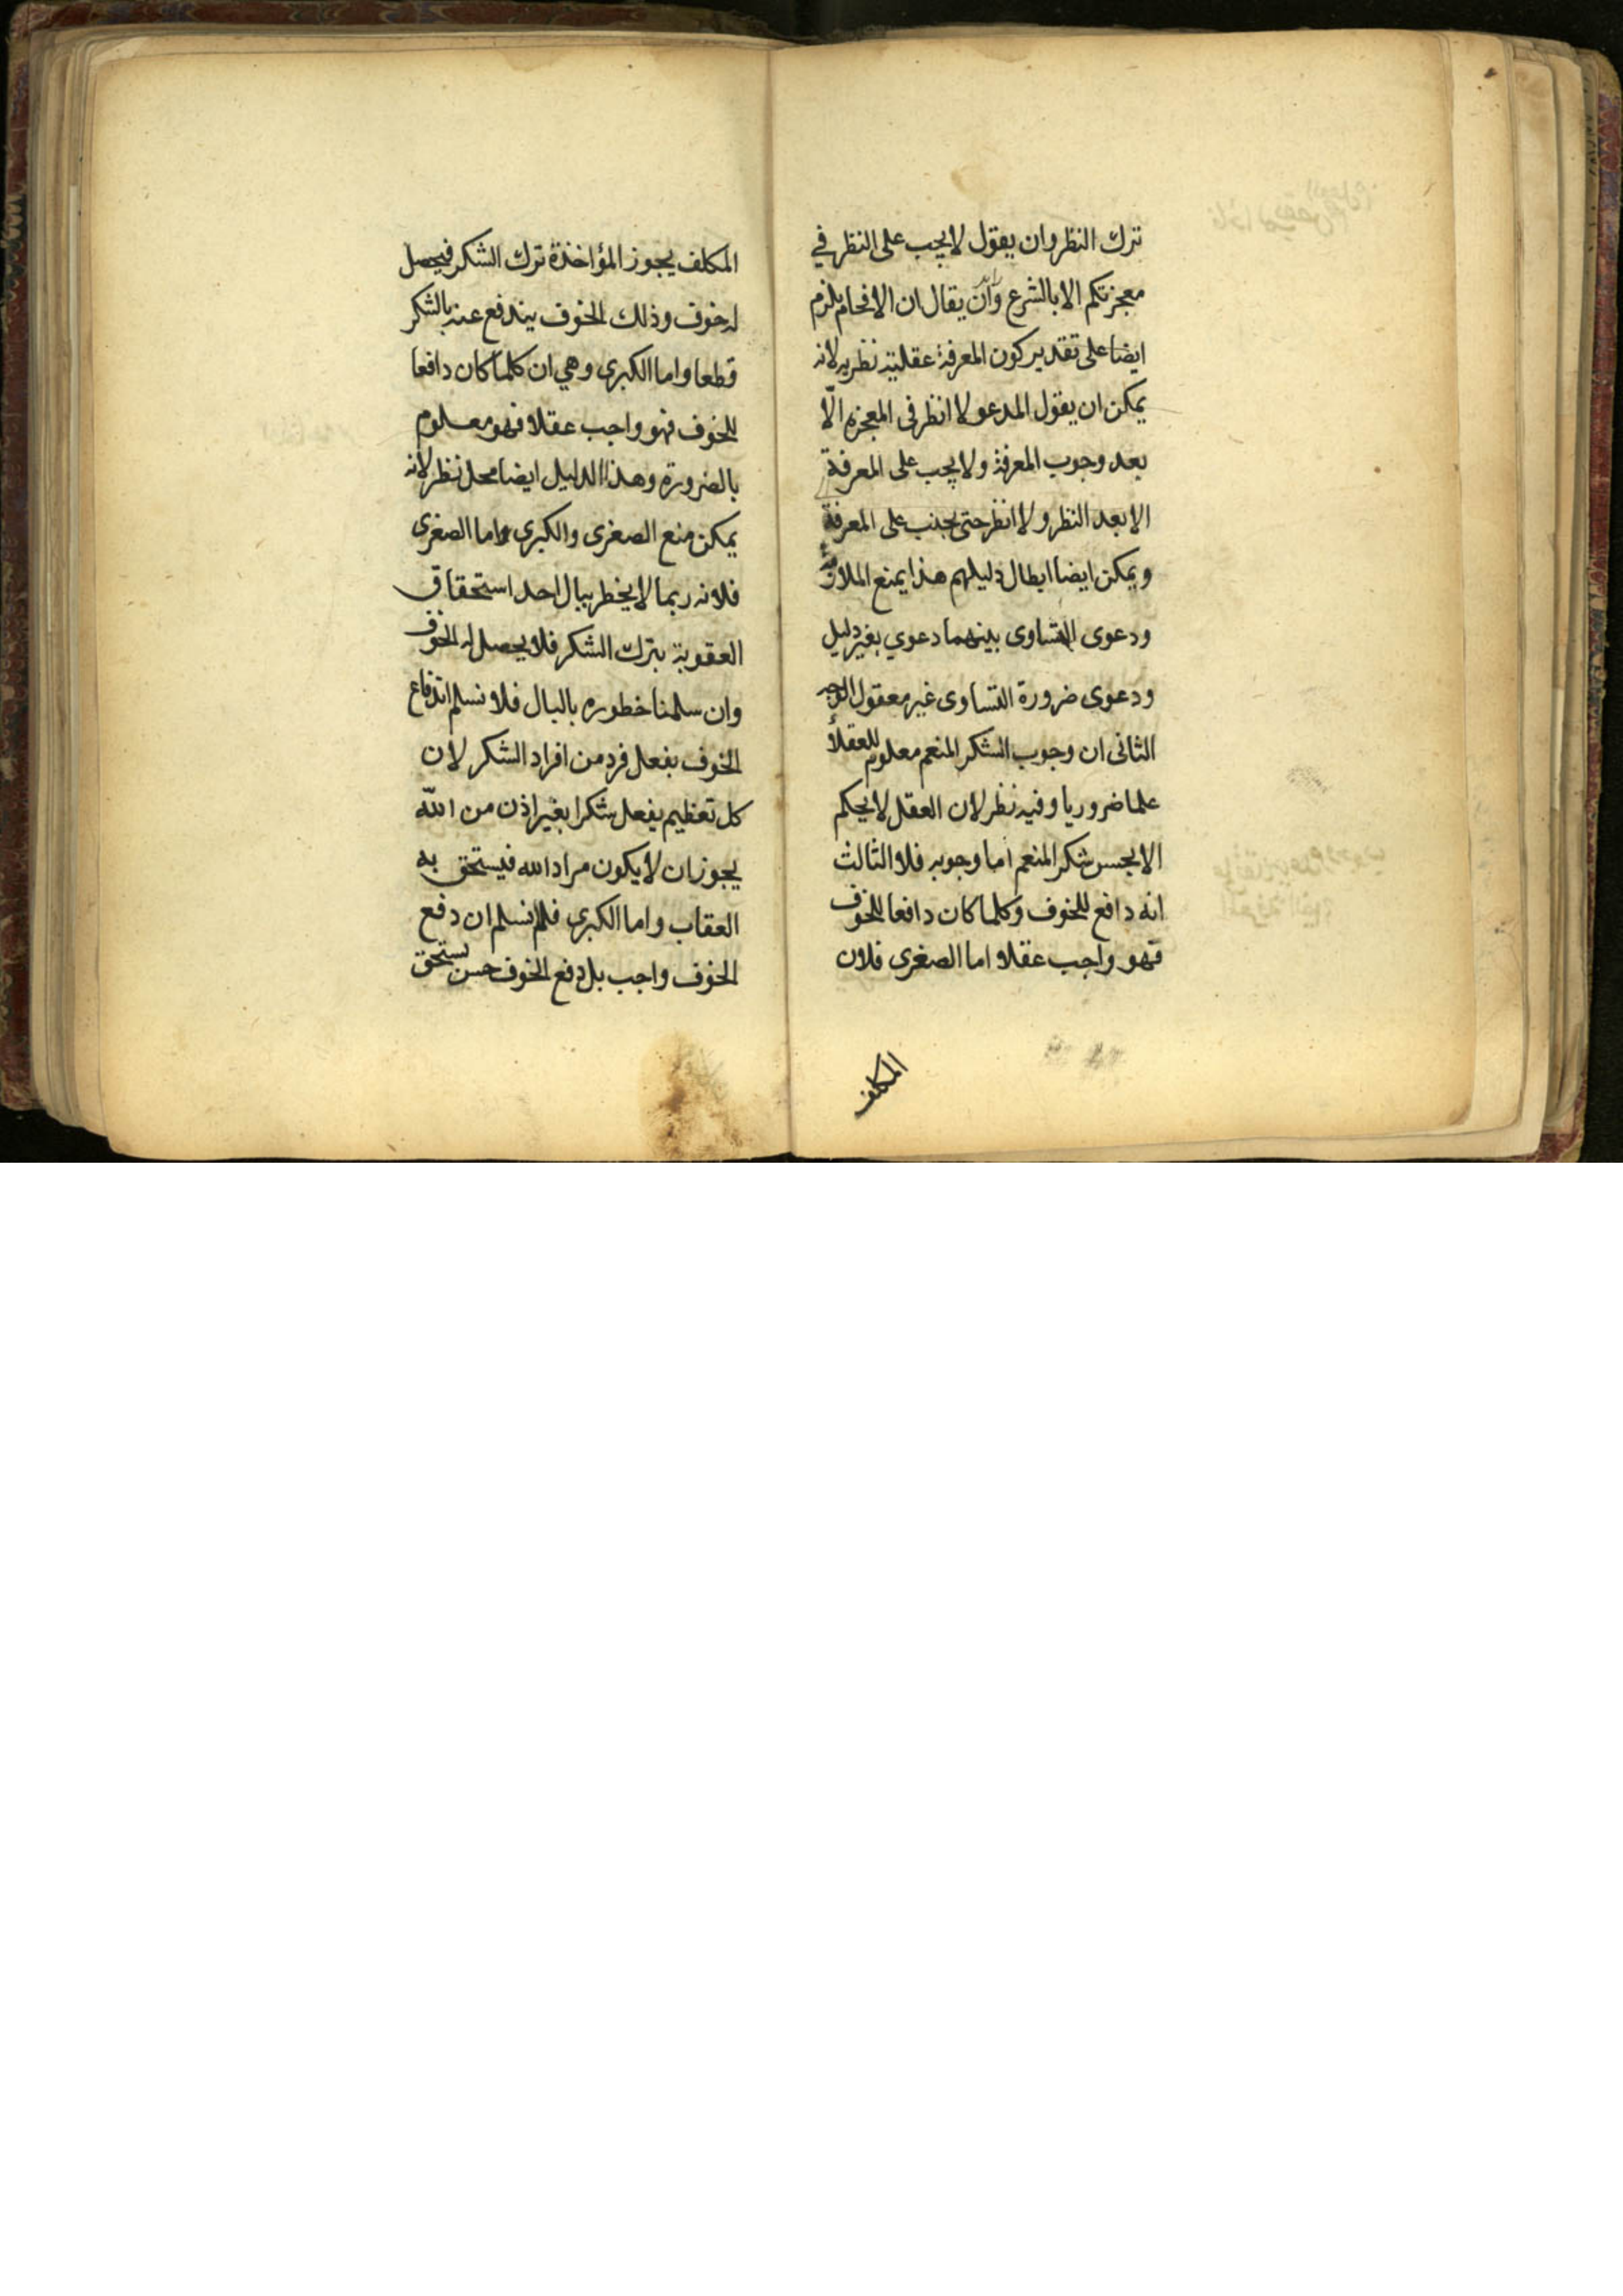 ترك النظر وان يقول لا يجب على النظر في
معجزتكم الا بالشرع وان يقال ان الافحام يلزم
ايضا على تقدير كون المعرفة عقلية نظريه لانه
يمكن ان يقول المدعو لا انظر فى المعجزه الّا
بعد وجوب المعرفة ولا يجب على المعرفة
الا بعد النظر ولا انظر حتى يجب على المعرفة
ويمكن ايضا ابطال دليلهم هذا بمنع الملازمة
ودعوى التساوى بينهما دعوي بغير دليل
ودعوى ضرورة التساوى غير معقول الوجه
الثانى ان وجوب الشكر المنعم معلوم للعقلأ
علما ضروريا وفيه نظر لان العقل لا يحكم
الا بحسن شكر المنعم اما وجوبه فلا الثالث
انه دافع للخوف وكلما كان دافعا للخوف
فهو واجب عقلا اما الصغرى فلان
المكلف
المكلف يجوز المؤاخذة ترك الشكر فيحصل
له خوف وذلك الخوف يندفع عنه بالشكر
قطعا واما الكبرى وهي ان كلما كان دافعا
للخوف فهو واجب عقلا فهو معلوم
بالضرورة وهذا الدليل ايضا محل نظر لانه
يمكن منع الصغرى والكبرى واما الصغرى
فلانه ربما لا يخطر ببال احد استحقاق
العقوبة بترك الشكر فلا يحصل له الخوف
وان سلمنا خطوره بالبال فلا نسلم اندفاع
الخوف بفعل فرد من افراد الشكر لان
كل تعظيم يفعل شكرا بغير اذن من الله
يجوز ان لا يكون مراد الله فيستحق به
العقاب واما الكبرى فلم نسلم ان دفع
الخوف واجب بل دفع الخوف حسن يستحق